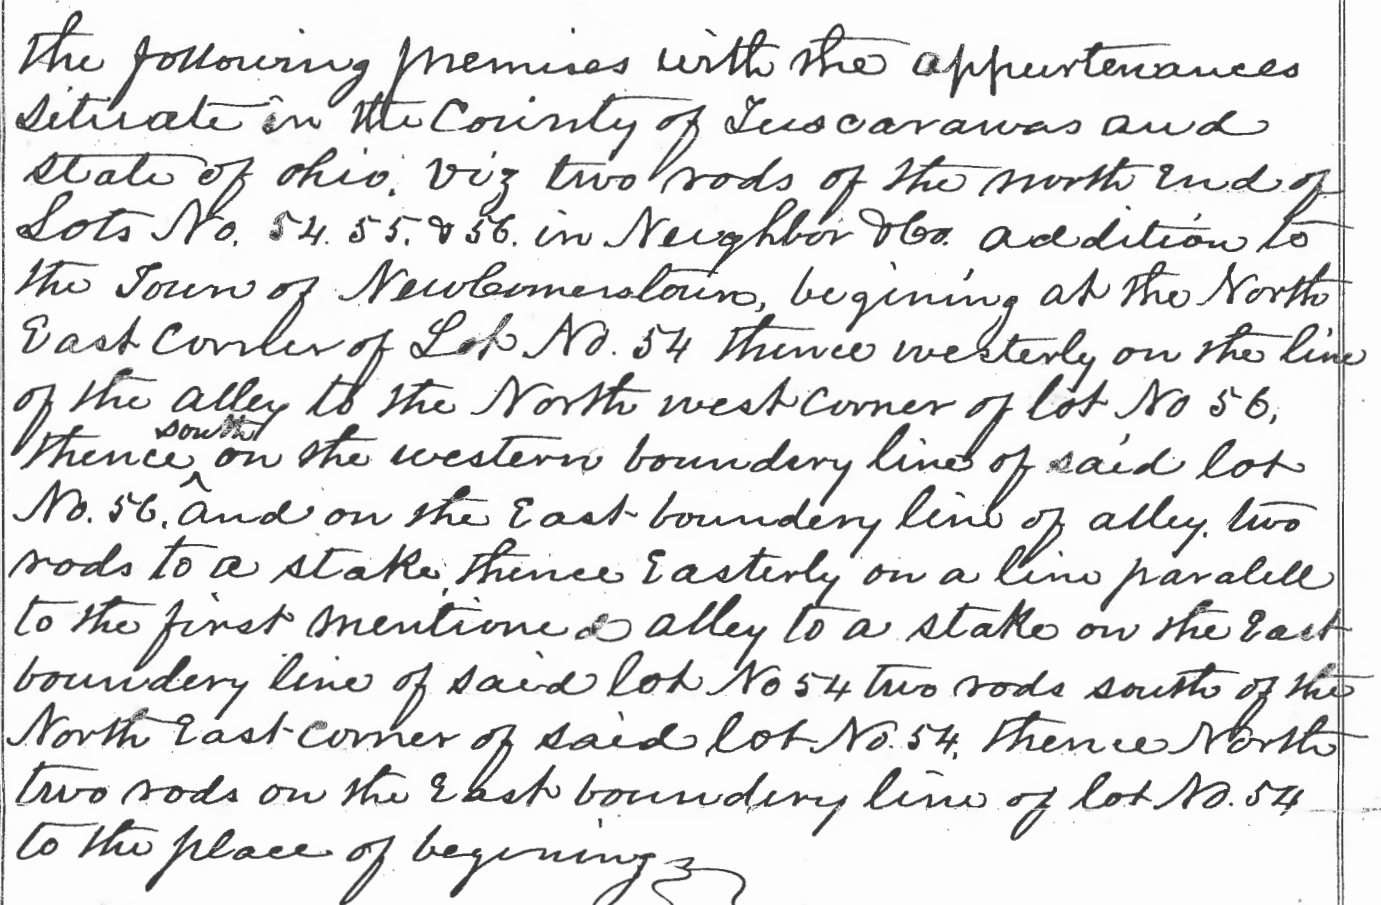 the following premises with the appurtenances
situate in the County of Tuscarawas and
state of ohio, viz two rods of the north End of
Lots No. 54. 55. & 56. in Neighbor & Co. addition to
the Town of NewComerstown, begining at the North
East Corner of Lot No. 54 thence westerly on the line
of the alley to the North west corner of lot No 56,
thence south on the western boundery line of said lot
No. 56. and on the East boundery line of alley. two
rods to a stake, thence Easterly on a line paralell
to the first mentioned alley to a stake on the East
boundery line of said lot No 54 two rods south of the
North East corner of said lot No. 54, thence North
two rods on the East boundery line of lot No. 54
to the place of begining